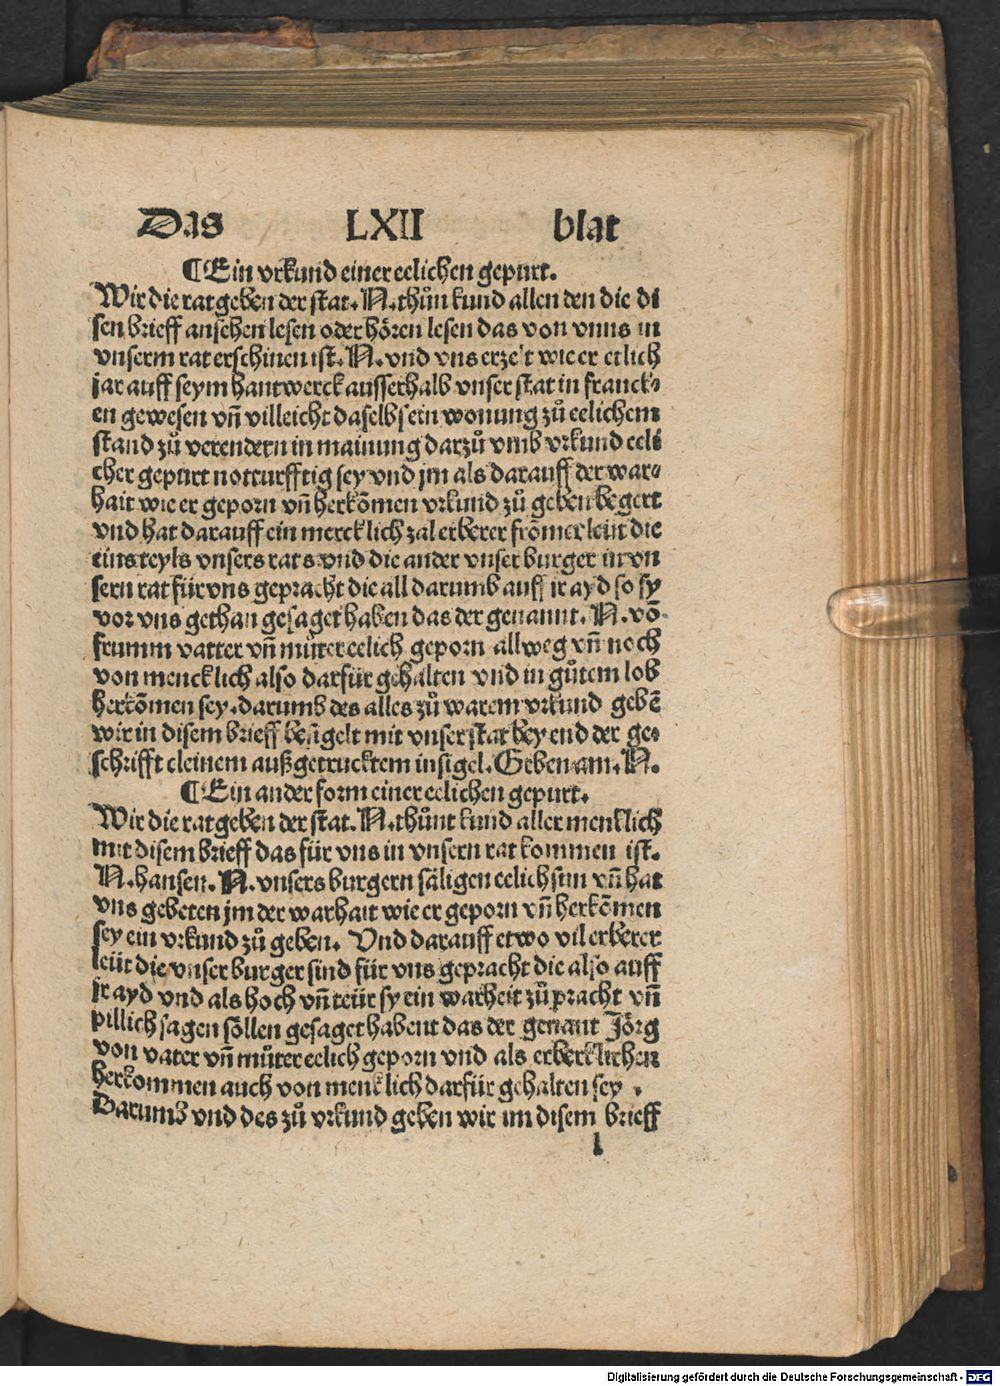 Das LXII blat
¶Ein vrkund einer eelichen gepurt.
Wir die ratgeben der stat. N. thůn kund allen den die di
sen brieff ansehen lesen oder hören lesen das von vnns in
vnserm rat erschinen ist. N. vnd vns erzelt wie er etlich
jar auff seym hantwerck ausserhalb vnser stat in franck⸗
en gewesen vñ villeicht daselb sein wonung zů eelichem
stand zů verendern in mainung darzů vmb vrkund eeli
cher gepurt notturfftig sey vnd jm als darauff der war⸗
hait wie er geporn vñ herkõmen vrkund zů geben begert
vnd hat darauff ein mercklich zal erberer frõmer leüt die
eins teyls vnsers rats vnd die ander vnser burger in vn
sern rat für vns gepracht die all darumb auff ir ayd so sy
vor vns gethan gesaget haben das der genannt. N. võ
frumm vatter vñ můter eelich geporn allweg vñ noch
von mencklich also darfür gehalten vnd in gůtem lob
herkõmen sey. darumb des alles zů warem vrkund gebẽ
wir in disem brieff besigelt mit vnser stat bey end der ge⸗
schrifft cleinem außgetrucktem insigel. Geben am. N.
¶Ein ander form einer eelichen gepurt.
Wir die ratgeben der stat. N. thůnt kund aller menklich
mit disem brieff das für vns in vnsern rat kommen ist.
N. hansen. N. vnsers burgern säligen eelich sun vñ hat
vns gebeten jm der warhait wie er geporn vñ herkõmen
sey ein vrkund zů geben. Vnd darauff etwo vil erberer
leüt die vnser burger sind für vns gepracht die also auff
ir ayd vnd als hoch vñ teür sy ein warheit zů pracht vñ
pillich sagen söllen gesaget habent das der genant Jörg
von vater vñ můter eelich geporn vnd als erberklichen
herkommen auch von menklich darfür gehalten sey .
Darumb vnd des zů vrkund geben wir im disem brieff
l
Digitalisierung gefördert durch die Deutsche Forschungsgemeinschaft - DFG